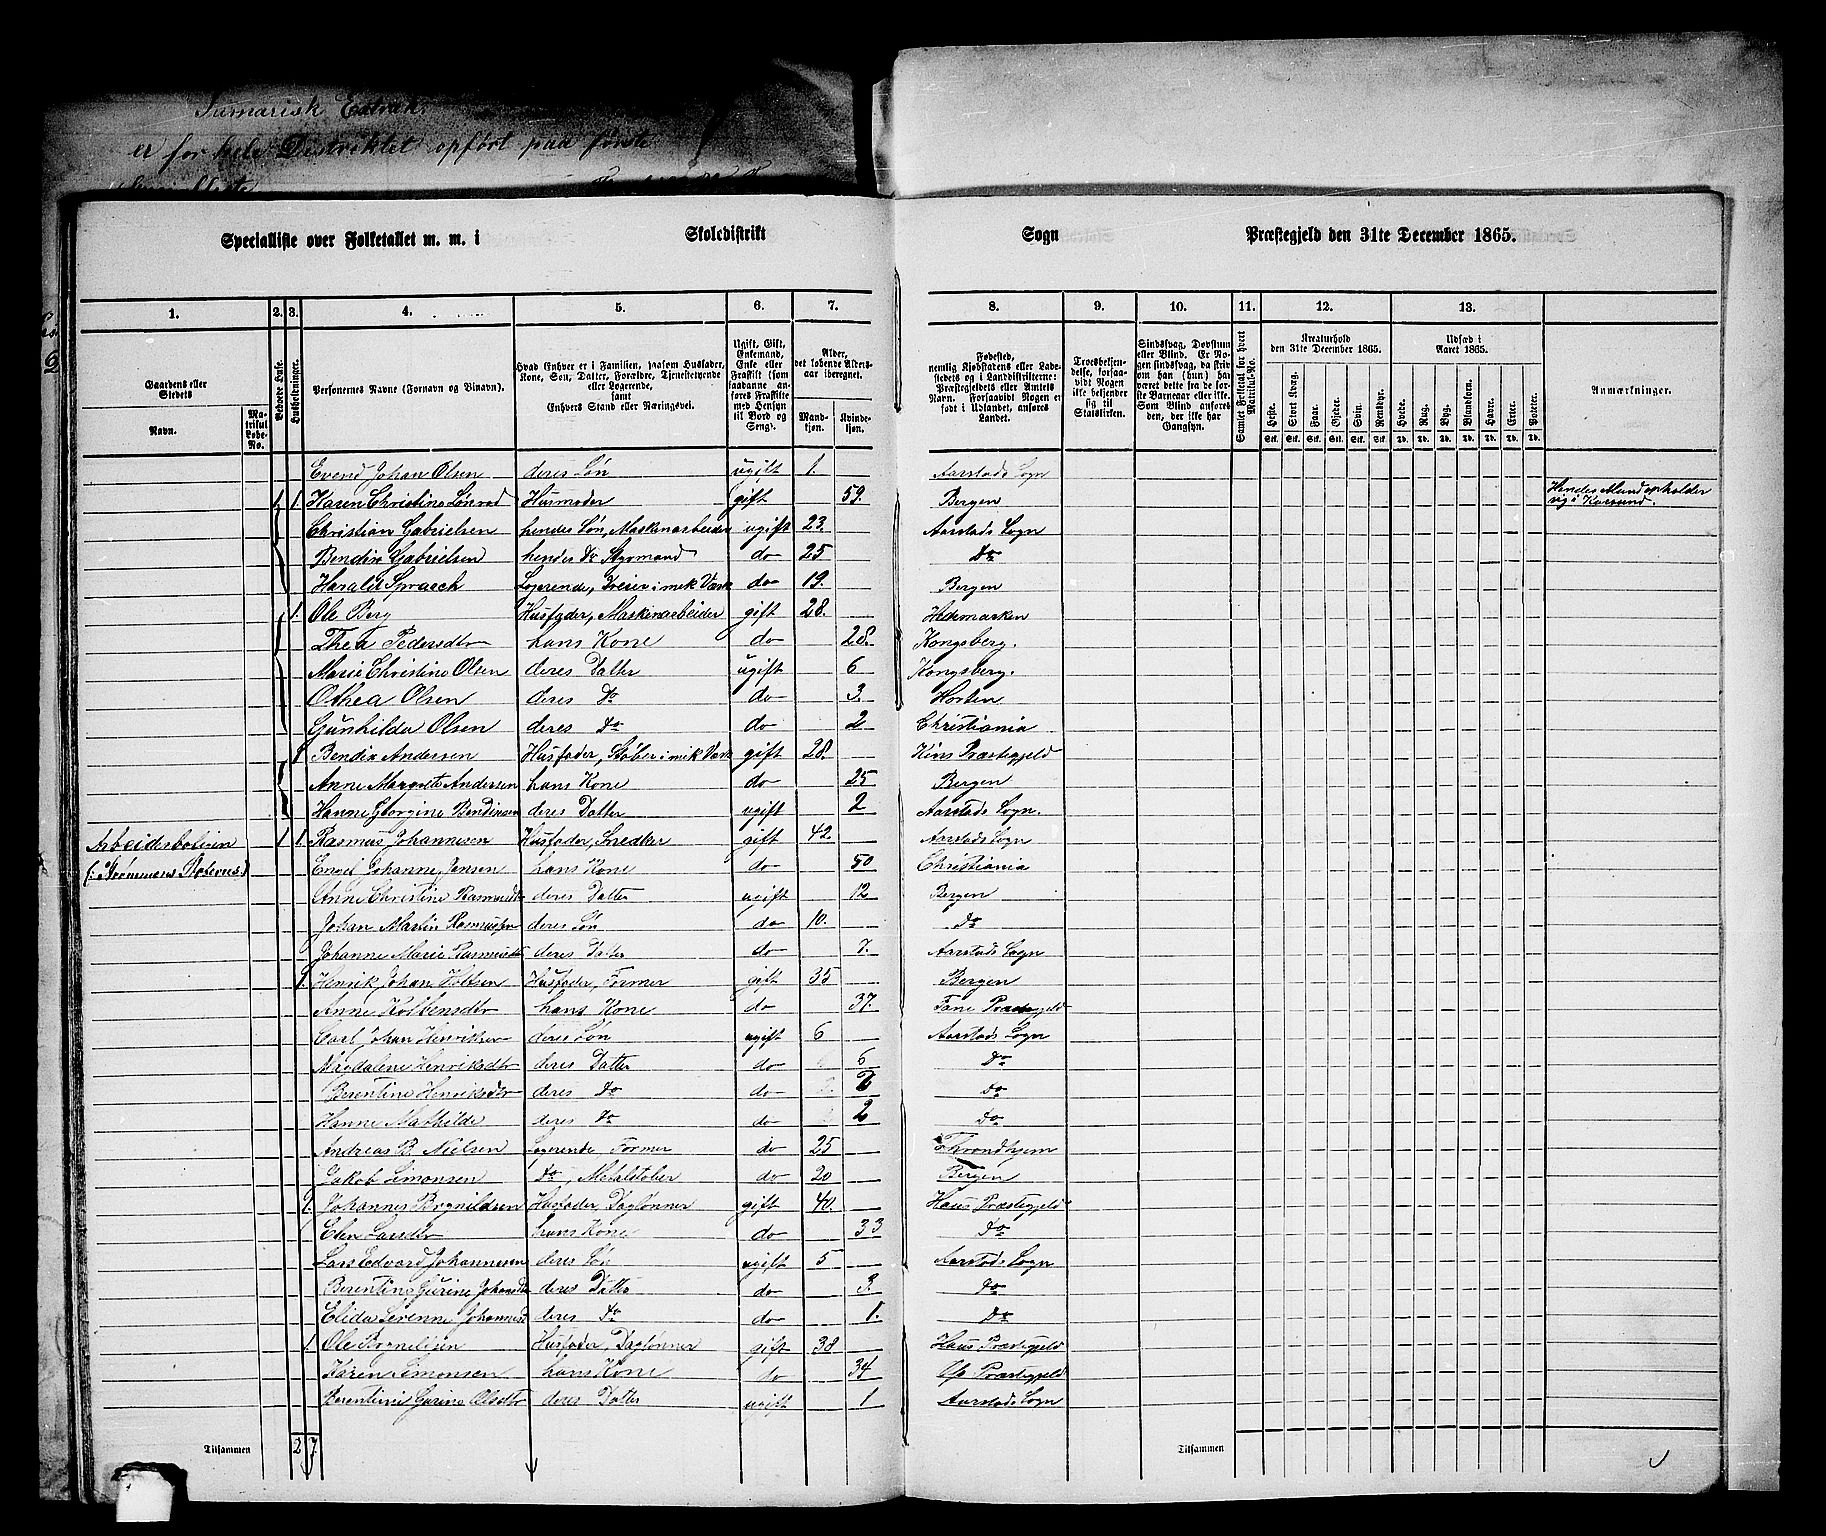 Sumarisk Extrakt
er for hele Distriktet opført paa første
Specialliste over Folketallet m. m. i Skoledistrikt Sogn Præstegjeld den 31te December 1865.
1. 2. 3. 4. 5. 6. 7. 8. 9. 10. 11. 12. 13.
Gaardens eller Stedets Navn. Matrikul Løbe-No. Beboede Huse. Husholdninger. Personernes Navne (Fornavn og Tilnavn). Hvad Enhver er i Familien, saasom Husfader, Kone, Søn, Datter, Forældre, Tjenestetyende eller Logerende, samt Enhvers Stand eller Næringsvei. Ugift, Gift, Enkemand, Enke eller Fraskilt (som saadanne anføres Fraskilte med Hensyn til Bord og Seng). Alder, det løbende Aldersaar iberegnet. Mandkjøn. Kvindekjøn.
Fødested, nemlig Kjøbstadens eller Ladestedets og i Landdistrikterne: Præstegjeldets eller Amtets Navn. Forsaavidt Nogen er født i Udlandet, anføres Landet. Troesbekjendelse, forsaavidt Nogen ikke bekjender sig til Statskirken. Sindssvag, Døvstum eller Blind. Er Nogen sindssvag, da skriv om han (hun) har været dette fra de første Barneaar eller ikke. Som Blind anføres den, der ikke har Gangsyn. Samlet Folketal for hvert Matrikul-No. Kreaturhold den 31te December 1865. Udsæd i Aaret 1865. Anmærkninger.
Heste. Stort Kvæg. Faar. Gjeder. Svin. Rensdyr. Hvede. Rug. Byg. Blandkorn. Havre. Erter. Poteter.
Evend Johan Olsen deres Søn ugift 1. Aarstads Sogn
1 1. Karen Christine Lønrod Husmoder gift 59. Bergen Hendes Mand opholder sig i Kvesund.
Christian Gabrielsen hendes Søn, Maskinarbeider ugift 23. Aarstads Sogn
Bendix Gabrielsen hendes Do Styrmand do 25 Do
Harald Spraech Logerende, Dreier i mek Værk do 19. Bergen
1. Ole Berg Husfader, Maskinarbeider gift 28. Hedemarken
Thea Pedersdtr hans Kone do 28. Kongsberg.
Marie Christine Olsen deres Datter ugift 6 Kongsberg.
Othea Olsen deres Do do 3. Horten
Gunhilda Olsen deres Do do 2 Christiania
1 Bendix Andersen Husfader, Støber i mek Værk gift 28. Kins Præstegjeld
Anne Margrete Andersen hans Kone do 25 Bergen
Hanne Georgine Bendixsen deres Datter ugift 2 Aarstads Sogn.
Arbeiderbolien 1 1 Rasmus Johannesen Husfader, Snedker gift 42. Aarstads Sogn
Engel Johanne Jansen hans Kone do 50 Christiania
Anne Christine Rasmusdtr deres Datter ugift 12 Bergen
Johan Martin Rasmussen deres Søn do 10. Do
Johanne Marie Rasmusdtr deres Datter do 7. Aarstads Sogn
1. Henrik Johan Holtsen Husfader, Former gift 35 Bergen
Anne Kolbensdtr hans Kone do 37. Fane Præstegjeld
Carl Johan Henriksen deres Søn ugift 6 Aarstads Sogn
Magdalene Henriksdtr deres Datter do 6 Do
Berentine Henriksdtr deres Do do Do
Hanne Mathilde deres Do do 2 Do
Andreas B. Nielsen Logerende Former do 25 Throndhjem
Jakob Simonsen Do, Metalstøber do 20 Bergen
1. Johannes Bognildsen Husfader, Daglønner gift 40. Haus Præstegjeld
Elen Larsdtr hans Kone do 33 Do
Lars Edvard Johannesen deres Søn ugift 5 Aarstads Sogn
Berentine Gurine Johansdtr deres Datter do 3. Do
Elida Severine Johannesd deres Do do 1. Do
1 Ole Bognildsen Husfader, Daglønner gift 38 Haus Præstegjeld
Karen Simonsen hans Kone do 34 Præstegjeld
Berentine Gurine Olsdtr deres Datter ugift 1 Aarstads Sogn
Tilsammen 2 7. Tilsammen